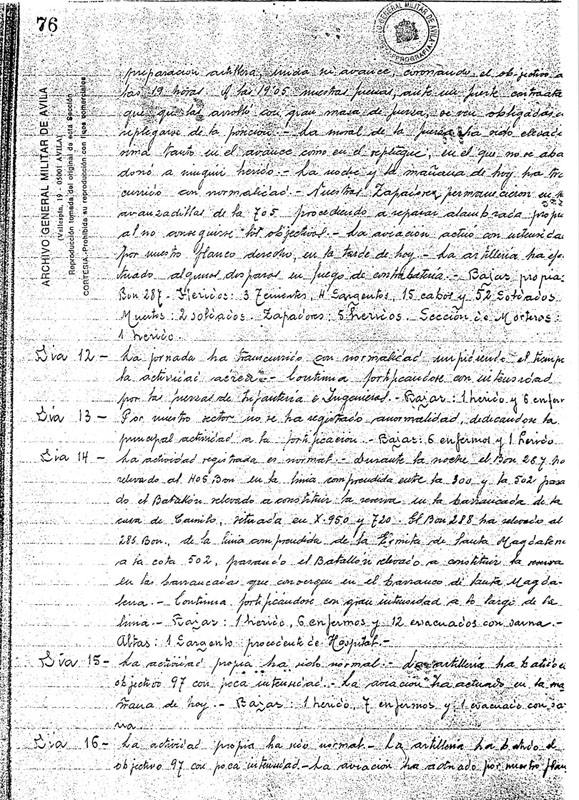 76
ARCHIVO GENERAL MILITAR DE AVILA
ARCHIVO GENERAL MILITAR DE AVILA
(Vallespin, 19 - 05001 AVILA)
Reproducción tomada del original de esta Sección
CORTESIA. -Prohibida su reproducción con fines comerciales
preparacion artillera, inicia su avance, coronando el objetivo a
las 19 horas. A las 19'05 nuestras fuerzas, ante un fuerte contrata
que que las arrolla con gran masa de fuerza, se ven obligadas a
replegarse de la posicion. - La moral de la fuerza ha sido elevadi
sima tanto en el avance como en el repliegue, en el que no se aba
donó a ningun herido. - La noche y la mañana de hoy ha tra
currido con normalidad. - Nuestros Zapadores permanecieron en
avanzadillas de la 705 procediendo a reparar alambrada propia
al no conseguirse los objetivos. - La aviación actuó con intensidad
por nuestro flanco derecho, en la tarde de hoy. - La artilleria ha efec
tuado algunos disparos en fuego de contrabateria. - Bajas propias:
Bon 287. - Heridos: 3 Tenientes, 4 Sargentos, 15 cabos y 52 Soldados.
Muertos: 2 soldados. Zapadores: 5 heridos. Sección de Morteros:
1 herido.
Dia 12 - La jornada ha transcurrido con normalidad impidiendo el tiempo
la actividad aérea. - Continua fortificandose con intensidad
por las fuerzas de Infanteria e Ingenieros. - Bajas: 1 herido y 6 enfer
Dia 13 - Por nuestro sector no se ha registrado anormalidad, dedicandose la
principal actividad a la fortificacion. - Bajas: 6 enfermos y 1 herido
Dia 14 - La actividad registrada es normal. - Durante la noche el Bon 287 ha
relevado al 406 Bon en la linia comprendida entre la 300 y la 502 pasa
do el Batallón relevado a constituir la reserva en la barrancada de la
casa de Camito, situada en X-950 y 720. El Bon 288 ha relevado al
285 Bon. de la linia comprendida de la Ermita de Santa Magdalena
a la cota 502, pasando el Batallón relevado a constituir la reserva
en las barrancadas que convergen en el barranco de Santa Magda-
lena. - Continua fortificandose con gran intensidad a lo largo de la
linia. - Bajas: 1 herido, 6 enfermos y 12 evacuados con sarna. -
Altas: 1 Sargento procedente de Hospital. -
Dia 15 - La actividad propia ha sido normal. - La artilleria ha batido el
objectivo 97 con poca intensidad. - La aviación ha actuado en la ma
ñana de hoy. - Bajas: 1 herido, 7 enfermos y 1 evacuado con sa
rna.
Dia 16 - La actividad propia ha sido normal. - La artilleria ha batido el
objectivo 97 con poca intensidad. - La aviación ha actuado por nuestro flan